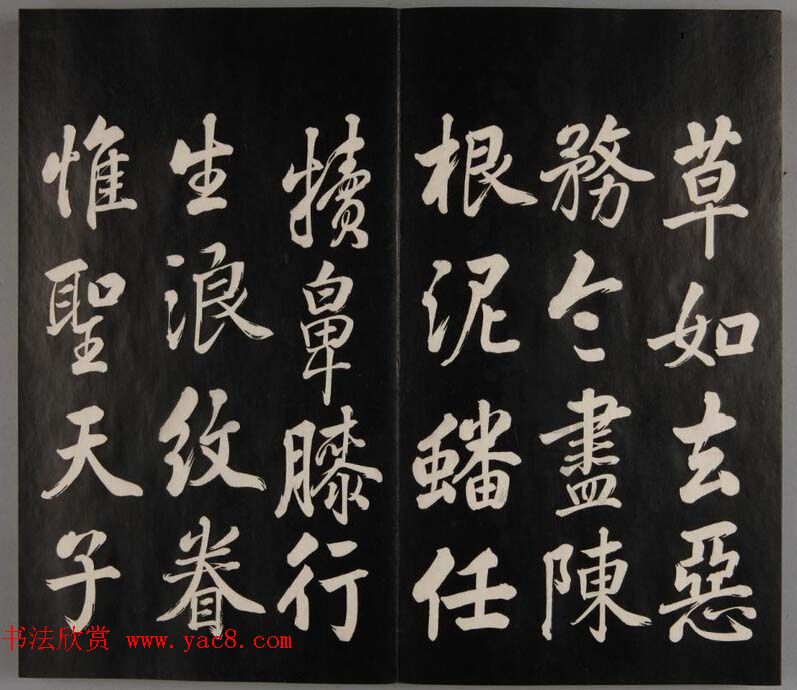 草如去惡
務令盡陳
根泥蟠任
犢鼻膝行
生浪紋眷
惟聖天子
书法欣赏 www.yac8.com